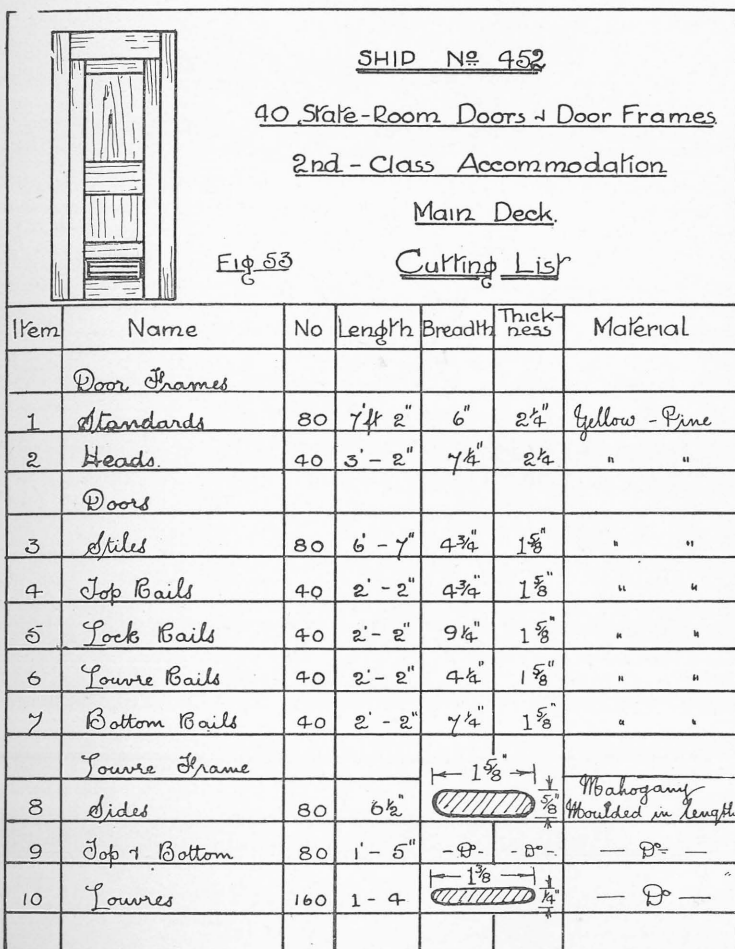 SHIP Nº 452
40 State-Room Doors & Door Frames
2nd-Class Accommodation
Main Deck.
Fig 53
Cutting List
Item Name No Length Breadth Thick-ness Material
Door Frames
1 Standards 80 7'ft 2" 6" 2¼" Yellow-Pine
2 Heads. 40 3'-2" 7¼" 2¼ " "
Doors
3 Stiles 80 6'-7" 4¾" 1⅝" " "
4 Top Rails 40 2'-2" 4¾" 1⅝" " "
5 Lock Rails 40 2'-2" 9¼" 1⅝" " "
6 Louvre Rails 40 2'-2" 4¼" 1⅝" " "
7 Bottom Rails 40 2'-2" 7¼" 1⅝" " "
Louvre Frame
8 Sides 80 6½" 1⅝" ⅝" Mahogany Moulded in length
9 Top & Bottom 80 1'-5" -Dº- -Dº- -Dº-
10 Louvres 160 1-4 1⅜ ¼" -Dº-